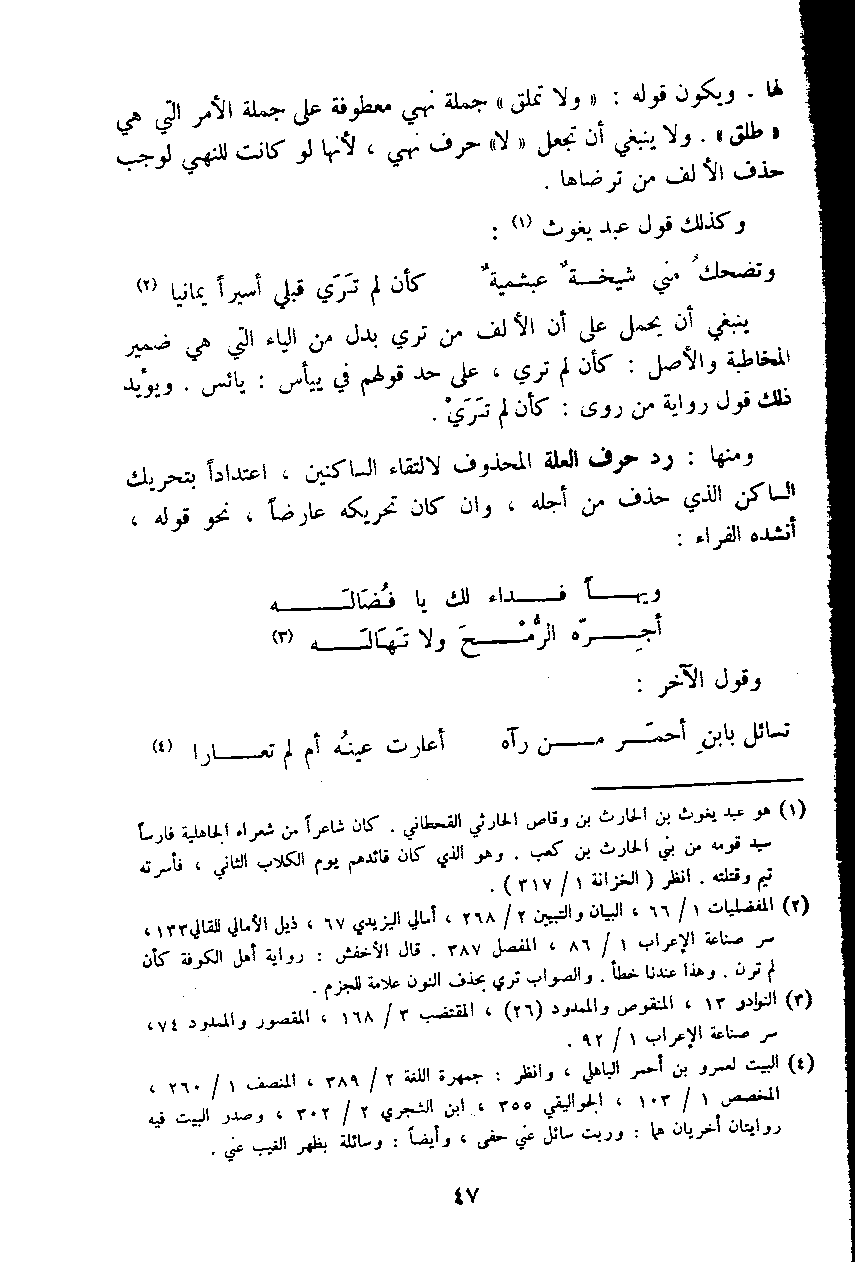 لها . ويكون قوله : « ولا تملق » جملة نهي معطوفة على جملة الأمر التي هي
« طلق » . ولا ينبغي أن تجعل « لا » حرف نهي ، لأنها لو كانت للنهي لوجب
حذف الألف من ترضاها .
وكذلك قول عبد يغوث (١) :
وتضحكُ مني شيخـــةٌ عبشميةٌ كأن لم تَرَي قبلي أسيراً يمانيا (٢)
ينبغي أن يحمل على أن الألف من تري بدل من الياء التي هي ضمير
المخاطبة والأصل : كأن لم تري ، على حد قولهم في ييأس : يائس . ويؤيد
ذلك قول رواية من روى : كأن لم تَرَيْ .
ومنها : رد حرف العلة المحذوف لالتقاء الساكنين ، اعتداداً بتحريك
الساكن الذي حذف من أجله ، وان كان تحريكه عارضاً ، نحو قوله ،
أنشده الفراء :
ويهـــاً فـــداء لك يا فُضَالَـــه
أجِـــرّه الرُّمْـــحَ ولا تَهَالَـــه (٣)
وقول الآخر :
تسائل بابنِ أحمـَـر مـــن رآه أعارت عينُه أم لم تعـــارا (٤)
(١) هو عبد يغوث بن الحارث بن وقاص الحارثي القحطاني . كان شاعراً من شعراء الجاهلية فارساً
سيد قومه من بني الحارث بن كعب . وهو الذي كان قائدهم يوم الكلاب الثاني ، فأسرته
تيم وقتلته . انظر ( الخزانة ١ / ٣١٧ ) .
(٢) المفضليات ١ / ٦٦ ، البيان والتبيين ٢ / ٢٦٨ ، أمالي اليزيدي ٦٧ ، ذيل الأمالي للقالي ١٣٣ ،
سر صناعة الإعراب ١ / ٨٦ ، المفصل ٣٨٧ . قال الأخفش : رواية أهل الكوفة كأن
لم ترن . وهذا عندنا خطأ . والصواب تري بحذف النون علامة للجزم .
(٣) النوادر ١٣ ، المنقوص والممدود (٢٦) ، المقتضب ٣ / ١٦٨ ، المقصور والممدود ٧٤ ،
سر صناعة الإعراب ١ / ٩٢ .
(٤) البيت لعمرو بن أحمر الباهلي ، وانظر : جمهرة اللغة ٢ / ٣٨٩ ، المنصف ١ / ٢٦٠ ،
المخصص ١ / ١٠٣ ، الجواليقي ٣٥٥ ، ابن الشجري ٢ / ٣٠٢ ، وصدر البيت فيه
روايتان أخريان هما : وربت سائل عني حفى ، وأيضاً : وسائلة بظهر الغيب عني .
٤٧